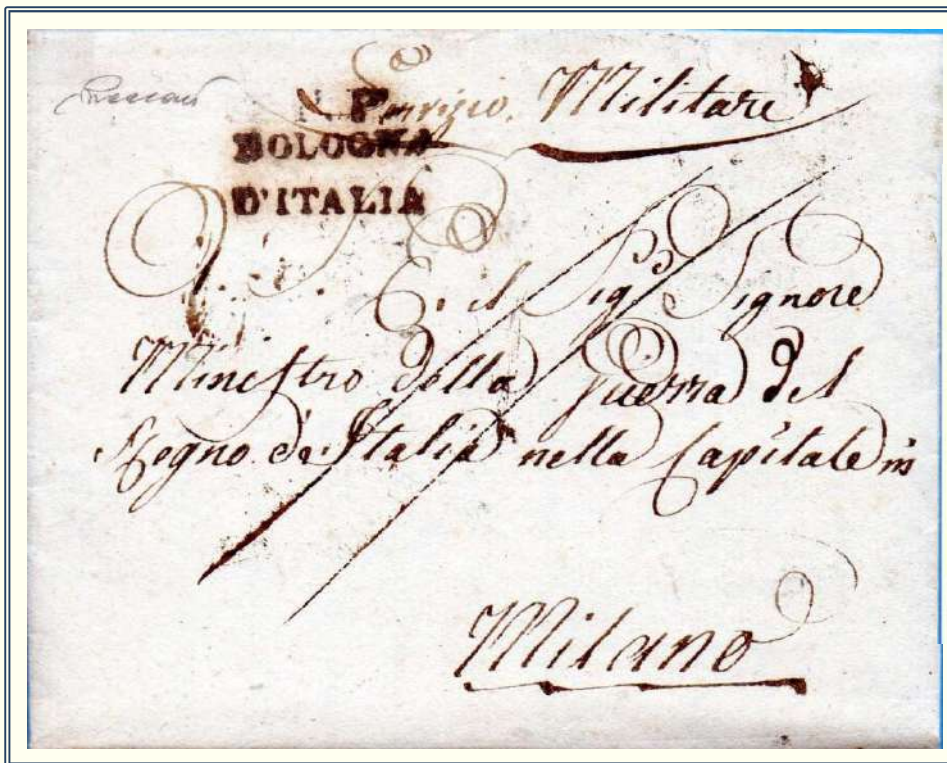 Servizio Militare
N. P
BOLOGNA
D'ITALIA
E. il Sig.e Signore
Ministro della Guerra del
Regno d'Italia nella Capitale in
Milano